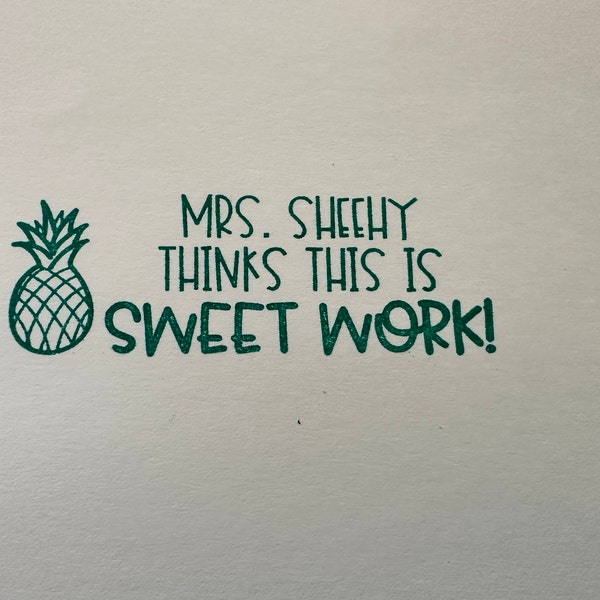 MRS. SHEEHY
THINKS THIS IS
SWEET WORK!